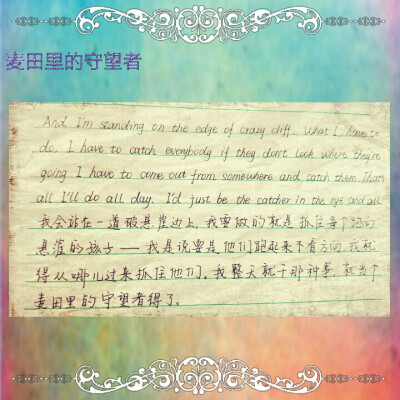 麦田里的守望者
And I'm standing on the edge of crazy cliff. What I have to
do. I have to catch everybody if they don't look where they're
going I have to come out from somewhere and catch them. That's
all I'll do all day. I'd just be the catcher in the rye and all.
我会站在一道破悬崖边上,我要做的就是抓住每个跑向
悬崖的孩子——我是说要是他们跑起来不看方向,我就
得从哪儿过来抓住他们。我整天就干那种事,就当个
麦田里的守望者得了。